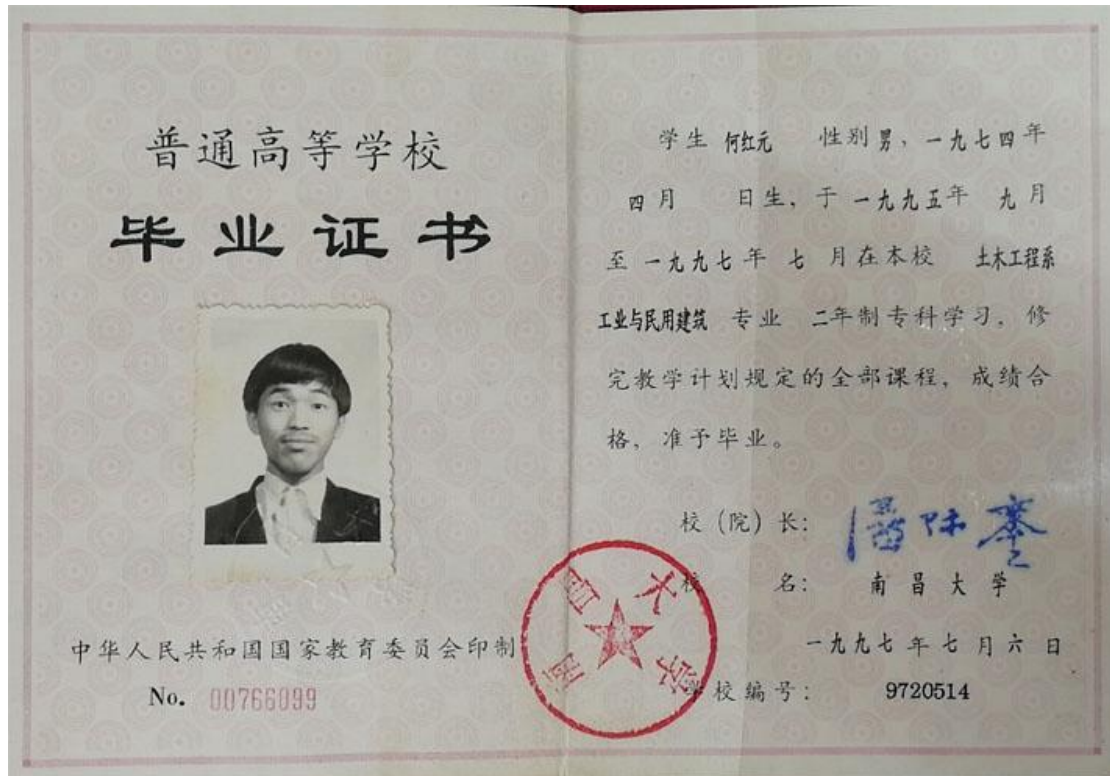 普通高等学校
毕业证书
中华人民共和国国家教育委员会印制
No. 00766099
学生 何红元 性别男，一九七四年
四月 日生，于一九九五年 九月
至一九九七年 七 月在本校 土木工程系
工业与民用建筑 专业 二年制专科学习，修
完教学计划规定的全部课程，成绩合
格，准予毕业。
校（院）长：
校 名： 南昌大学
一九九七年七月六日
学校编号： 9720514
南昌大学